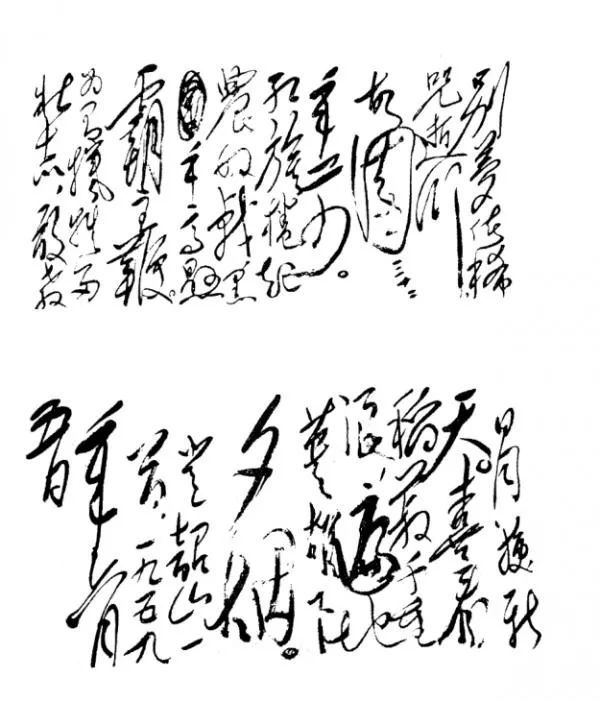 别梦依稀
咒逝川
故园三十二
年前。
红旗捲起
農奴戟黑
手高悬
霸主鞭。
为有犧牲多
壮志,敢教
日月换新
天。喜看
稻菽千重
浪,遍地
英雄下
夕烟。
韶山一
首,一九五九
年六月